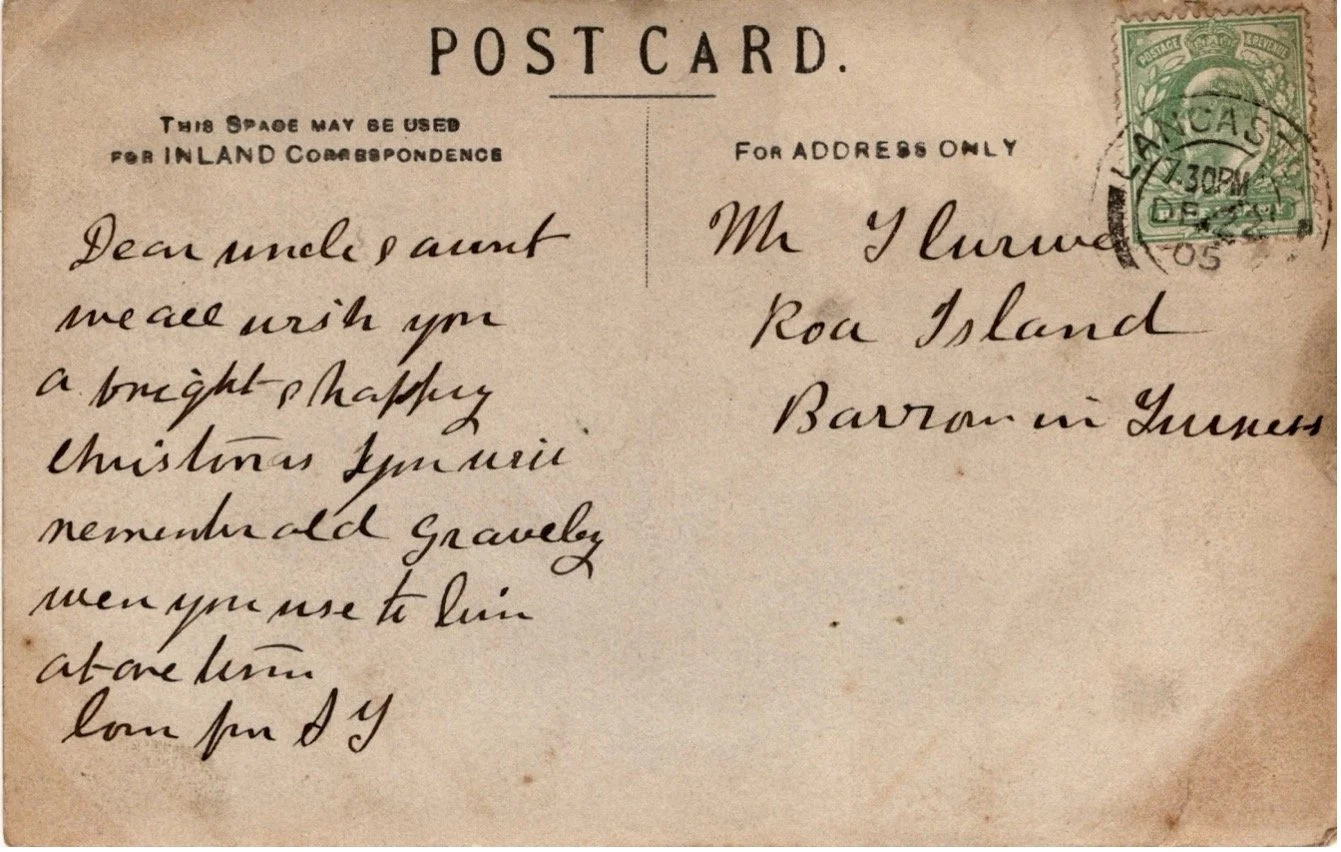 POST CARD.
THIS SPACE MAY BE USED
FOR INLAND CORRESPONDENCE
FOR ADDRESS ONLY
POSTAGE & REVENUE
LANCAST
7.30PM
DE 22
05
Dear uncle & aunt
we all wish you
a bright & happy
christmas & you will
remember old Gravely
wen you use to liv
at one time
love from S Y
Mr
Roa Island
Barrow in Furness